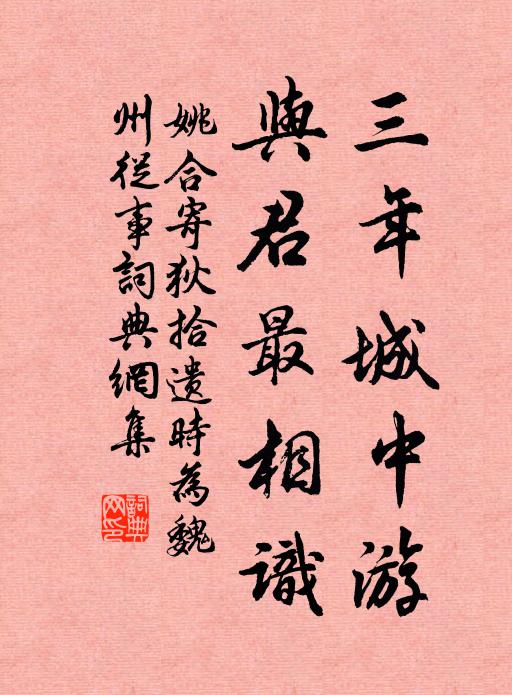 三年城中游
與君最相識
姚合寄狄拾遺時為魏
州從事詞典網集
詞典
网印